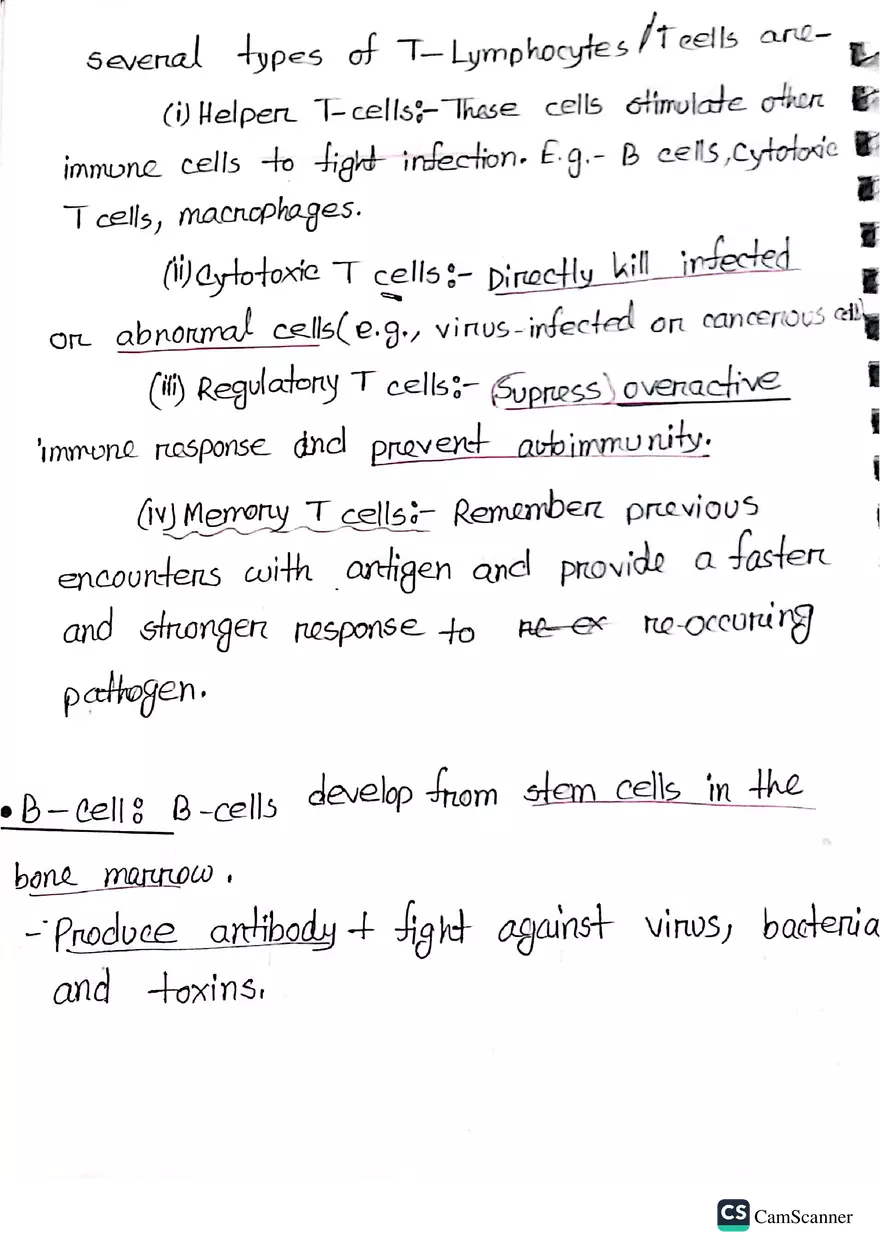 several types of T-Lymphocytes/T cells are-
(i) Helper T-cells:- These cells stimulate other
immune cells to fight infection. E.g.- B cells, Cytotoxic
T cells, macrophages.
(ii) Cytotoxic T cells:- Directly kill infected
or abnormal cells (e.g., virus-infected or cancerous cell)
(iii) Regulatory T cells:- (Supress) overactive
immune response and prevent autoimmunity.
(iv) Memory T cells:- Remember previous
encounters with antigen and provide a faster
and stronger response to re ex re-occuring
pathogen.
• B-cell: B-cells develop from stem cells in the
bone marrow.
- Produce antibody + fight against virus, bacteria
and toxins.
CS CamScanner